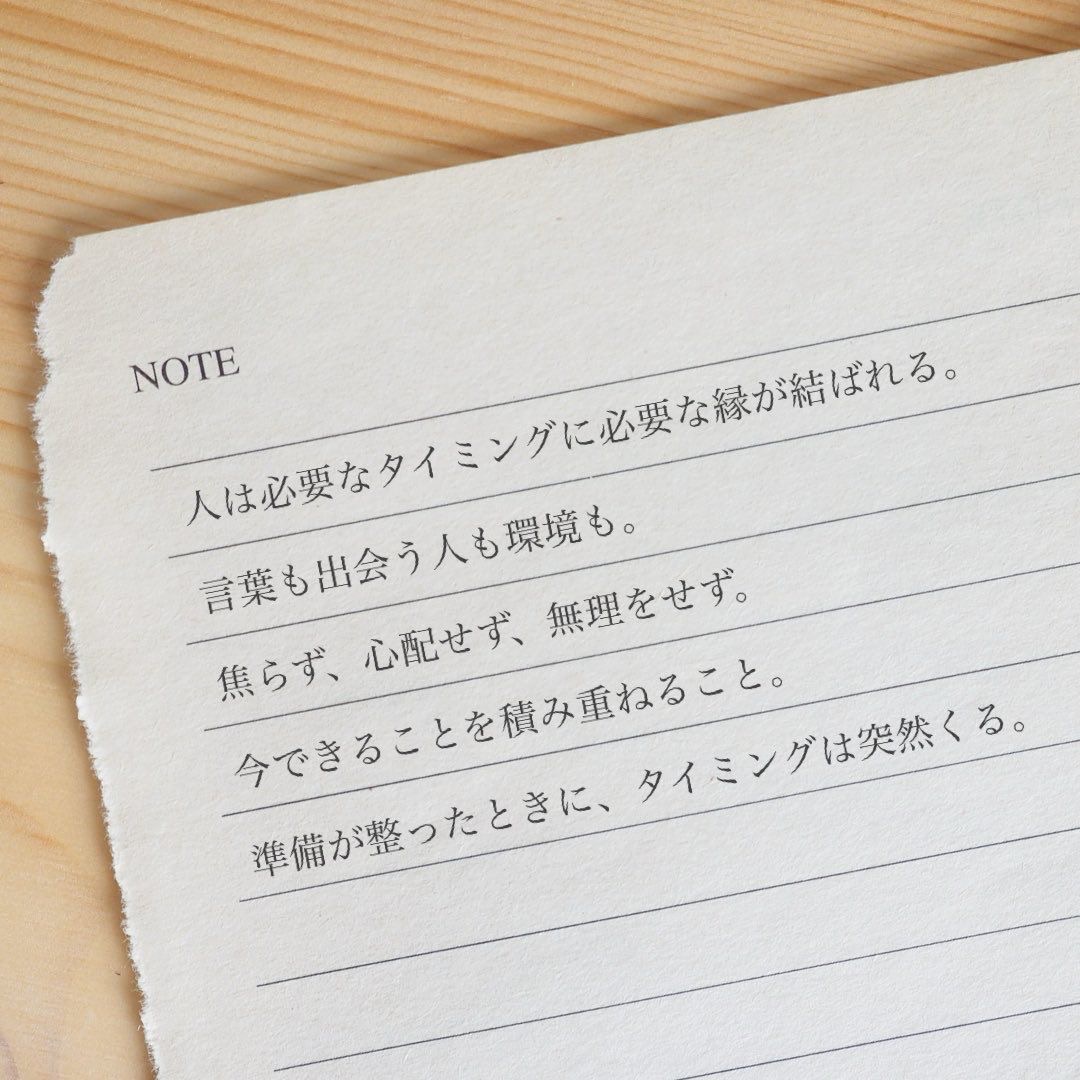 NOTE
人は必要なタイミングに必要な縁が結ばれる。
言葉も出会う人も環境も。
焦らず、心配せず、無理をせず。
今できることを積み重ねること。
準備が整ったときに、タイミングは突然くる。